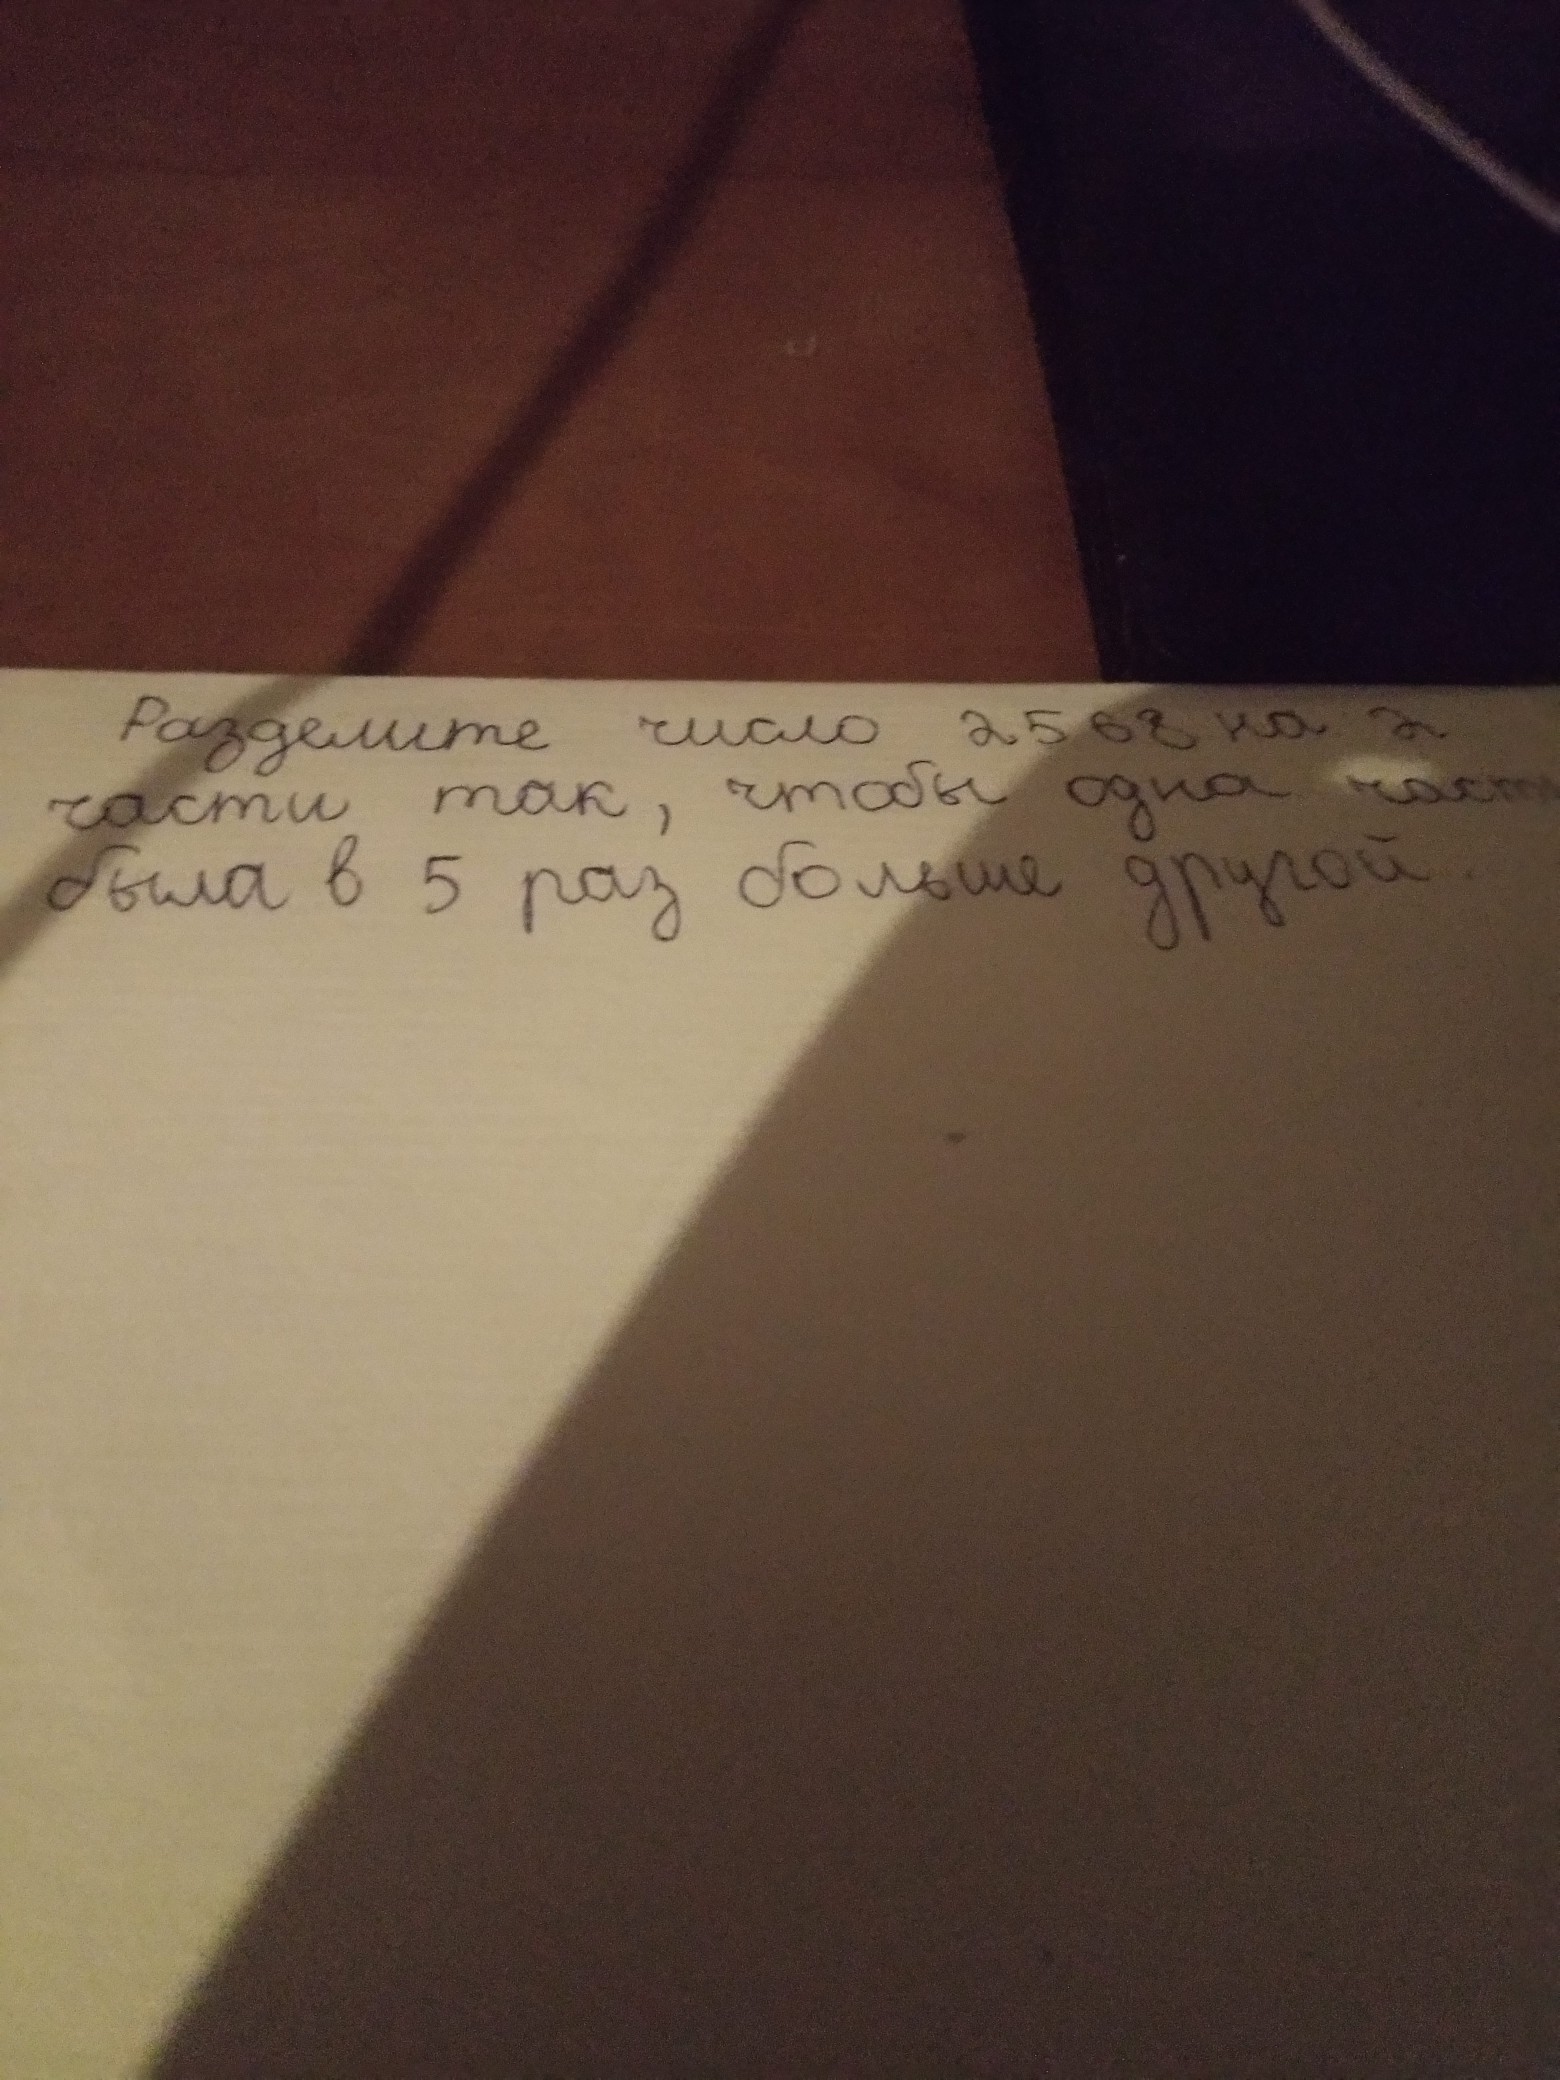 Разделите число 2568 на 2
части так, чтобы одна част
была в 5 раз больше другой.